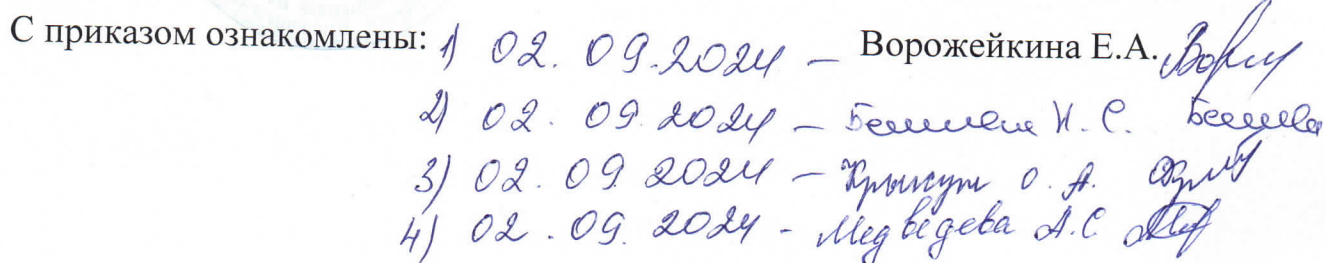 С приказом ознакомлены: 1) 02. 09. 2024 – Ворожейкина Е.А.
2) 02. 09. 2024 – Н. С.
3) 02. 09. 2024 – О. А.
4) 02. 09. 2024 - Медведева А.С